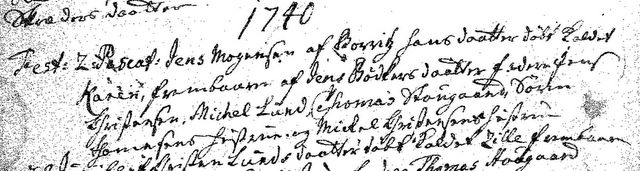 Skræders daatter
1740
Fest: 2 Pascat: Jens Mogensen af Borris hans daatter döbt kaldet
Karen, frembaaren af Jens Bödkers daatter faddere Jens
Christensen, Michel Lund, Thomas Stougaard, Sören
Thomesens hustrue, og Mickel Christensens hustrue
Christen Lunds daatter döbt kaldet Zille frembaaren
Thomas Aadgaard